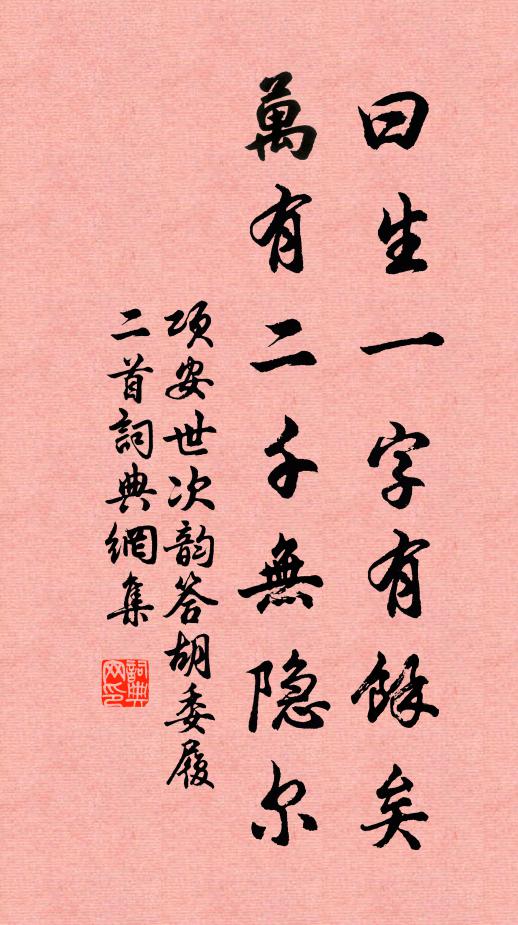 曰生一字有餘矣
萬有二千無隐尔
项安世次韵答胡委履
二首詞典網集
詞典
网印